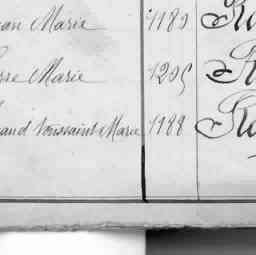 ean Marie 1189
rre Marie 1205
and Toussaint Marie 1188